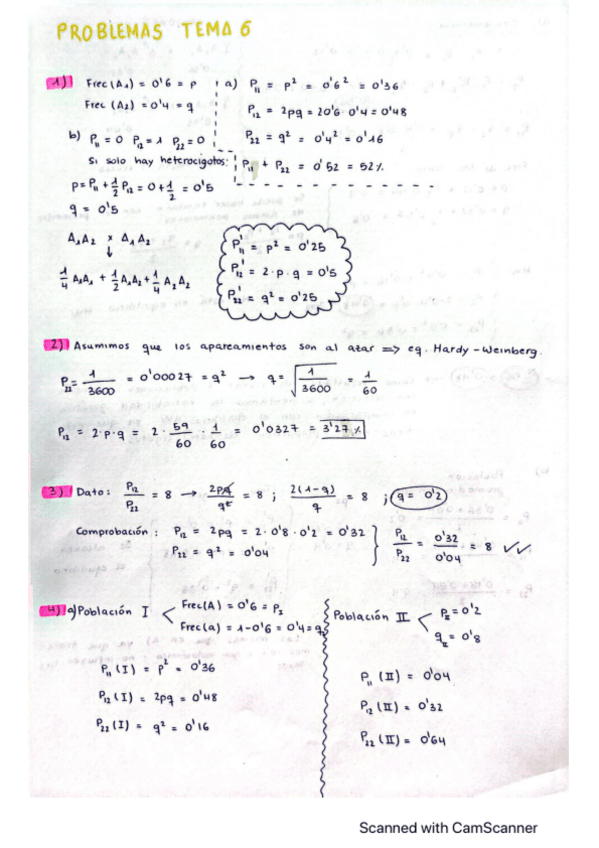 PROBLEMAS TEMA 6
1) Frec (A₁) = 0'6 = p
Frec (A₂) = 0'4 = q
a) P₁₁ = p² = 0'6² = 0'36
P₁₂ = 2pq = 2·0'6·0'4 = 0'48
P₂₂ = q² = 0'4² = 0'16
P₁₁ + P₂₂ = 0'52 = 52%
b) P₁₁ = 0 P₁₂ = 1 P₂₂ = 0
Si solo hay heterocigotos:
p = P₁₁ + 1/2 P₁₂ = 0 + 1/2 = 0'5
q = 0'5
A₁A₂ x A₁A₂
↓
1/4 A₁A₁ + 1/2 A₁A₂ + 1/4 A₂A₂
P'₁₁ = p² = 0'25
P'₁₂ = 2·p·q = 0'5
P'₂₂ = q² = 0'25
2) Asumimos que los apareamientos son al azar => eq. Hardy-Weinberg.
P₂₂ = 1/3600 = 0'00027 = q² → q = √(1/3600) = 1/60
P₁₂ = 2·p·q = 2 · 59/60 · 1/60 = 0'0327 = 3'27%
3) Dato: P₁₂/P₂₂ = 8 → 2pq/q² = 8 ; 2(1-q)/q = 8 ; q = 0'2
Comprobación: P₁₂ = 2pq = 2·0'8·0'2 = 0'32
P₂₂ = q² = 0'04
P₁₂/P₂₂ = 0'32/0'04 = 8 ✓✓
4) a) Población I
Frec(A) = 0'6 = p_I
Frec(a) = 1-0'6 = 0'4 = q_I
P₁₁(I) = p² = 0'36
P₁₂(I) = 2pq = 0'48
P₂₂(I) = q² = 0'16
Población II
p_II = 0'2
q_II = 0'8
P₁₁(II) = 0'04
P₁₂(II) = 0'32
P₂₂(II) = 0'64
Scanned with CamScanner